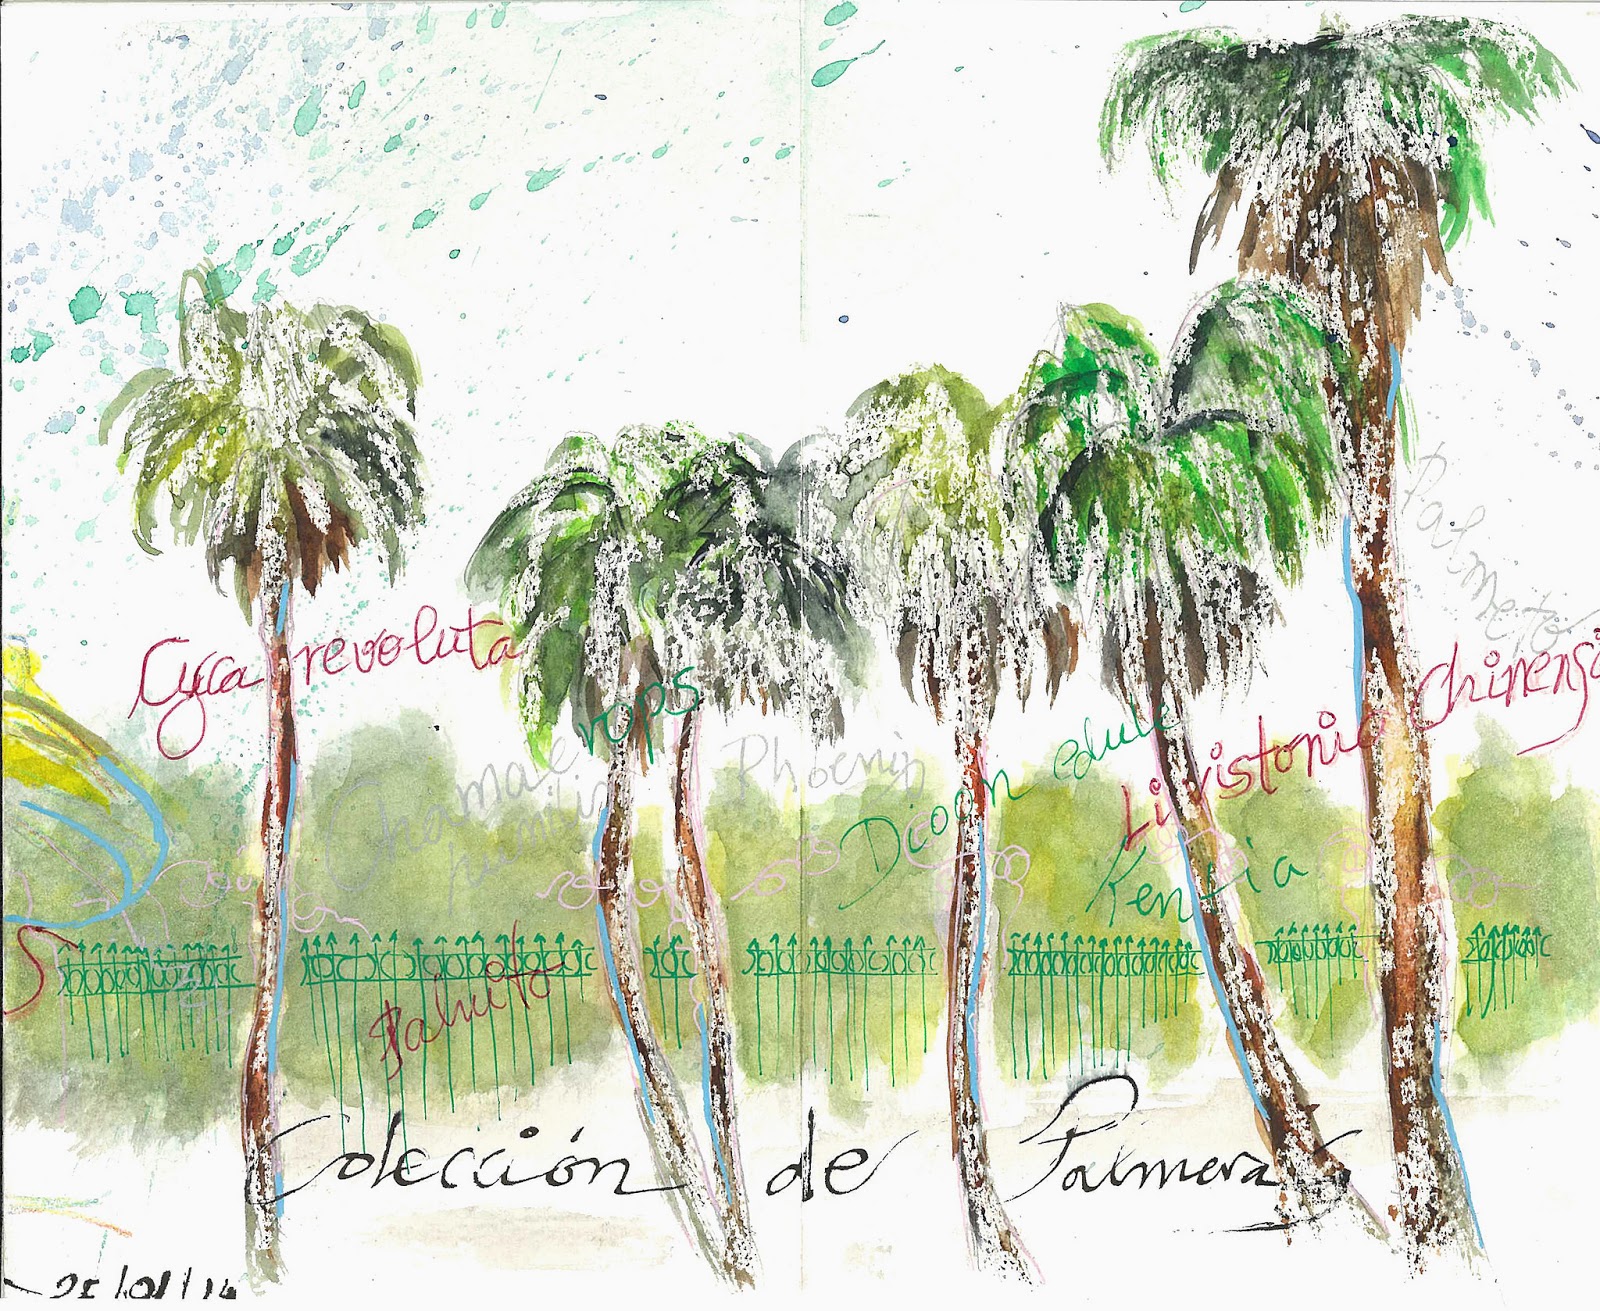 Palmeto
Cyca revoluta
Chamaerops
humilis
Phoenix
Dioon edule
Livistonia Chinensi
Kentia
Palmito
Colección de Palmeras
25/01/14